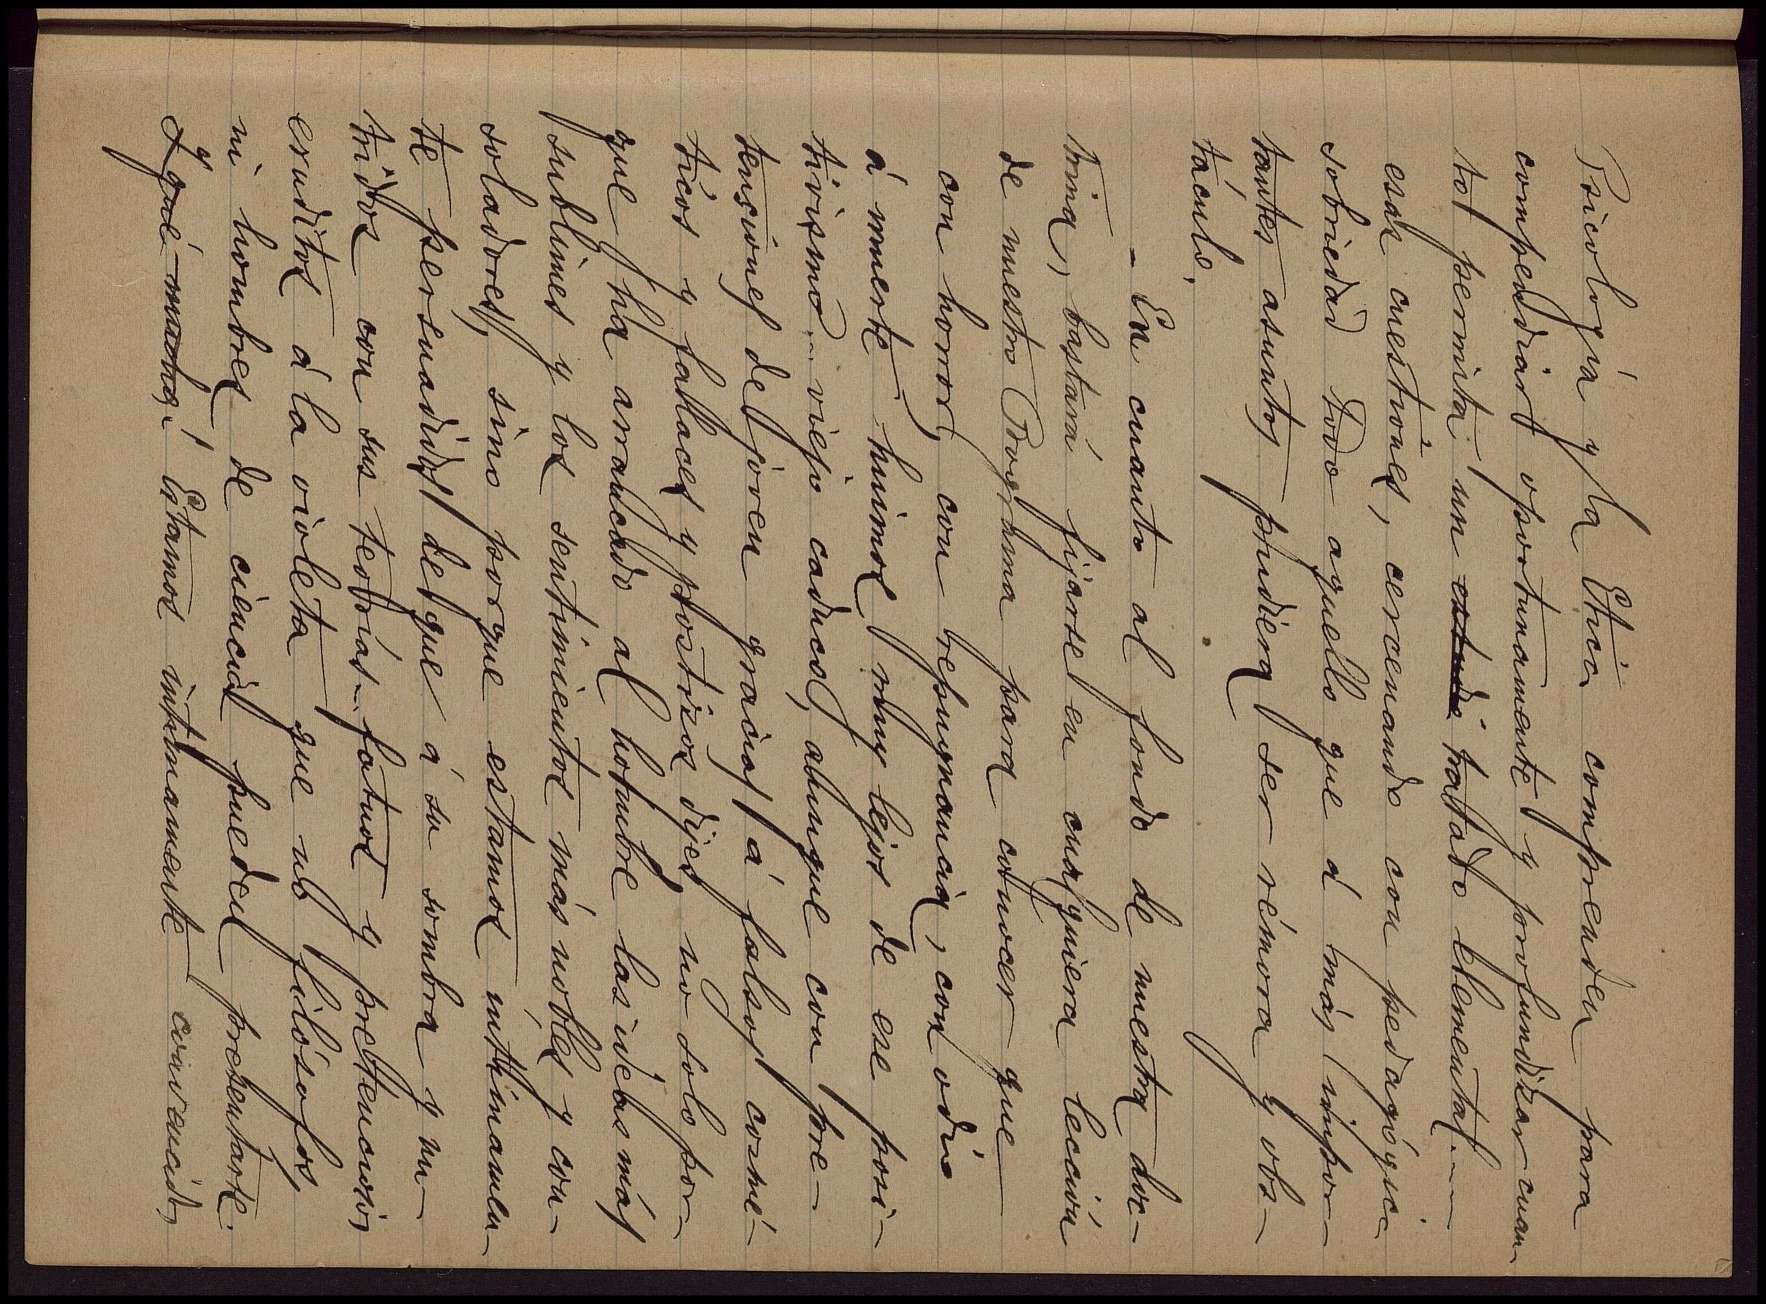 Psicología y la Etica comprenden para
compendiar oportunamente y profundizar cuan-
to permita un estudio tratado elemental....
esas cuestiones, cercenando con pedagógica
sobriedad todo aquello que á más impor-
tantes asuntos pudiera ser rémora y obs-
táculo.
- En cuanto al fondo de nuestra doc-
trina, bastará fijarse en cualquiera lección
de nuestro Programa para conocer que
con horror, con repugnancia, con odio
á muerte huimos muy lejos de ese posi-
tivismo... viejo caduco, aunque con pre-
tensiones de joven gracias á falsos cosmé-
ticos y fallaces y postizos dijes, no solo por-
que ha arrancado al hombre las ideas más
sublimes y los sentimientos más nobles y con-
soladores, sino porque estamos intimamen-
te persuadidos de que á su sombra y nu-
tridos con sus teorías... fatuos y pretenciosos
eruditos á la violeta que no filósofos,
ni hombres de ciencia pueden presentarse.
Y qué mucho! Estamos intimamente convencidos